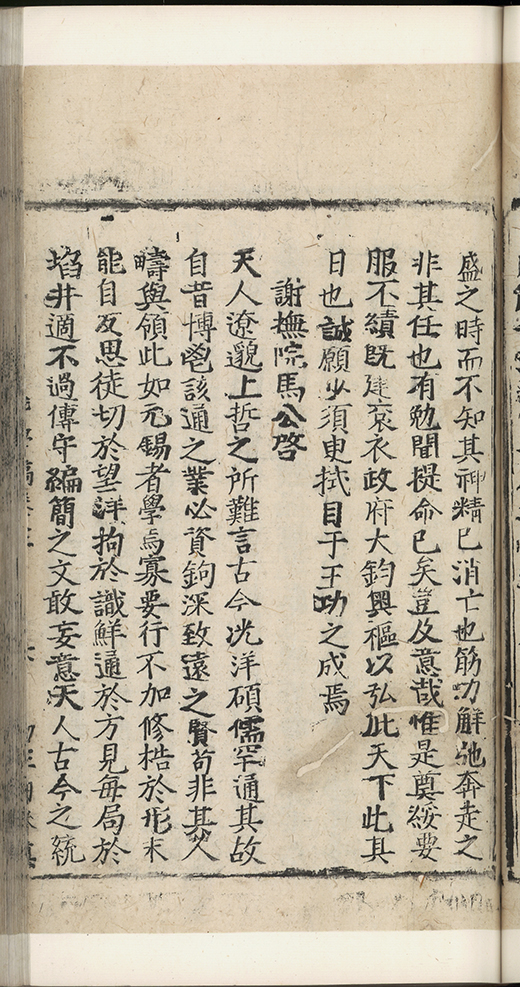 盛之時而不知其神精已消亡也筋力解弛奔走之
非其任也有勉聞提命已矣豈及意哉惟是奠綏要
服不績既建袞衣政府大鈞興樞以弘此天下此其
日也誠願少須臾拭目于王功之成焉
謝撫院馬公啓
天人遼邈上哲之所難言古今洸洋碩儒罕通其故
自昔慱鬯該通之業必資鉤深致遠之賢苟非其人
疇與領此如元錫者學焉寡要行不加修梏於形末
能自反思徒切於望洋拘於識鮮通於方見每局於
埳井適不過傳守編簡之文敢妄意天人古今之統